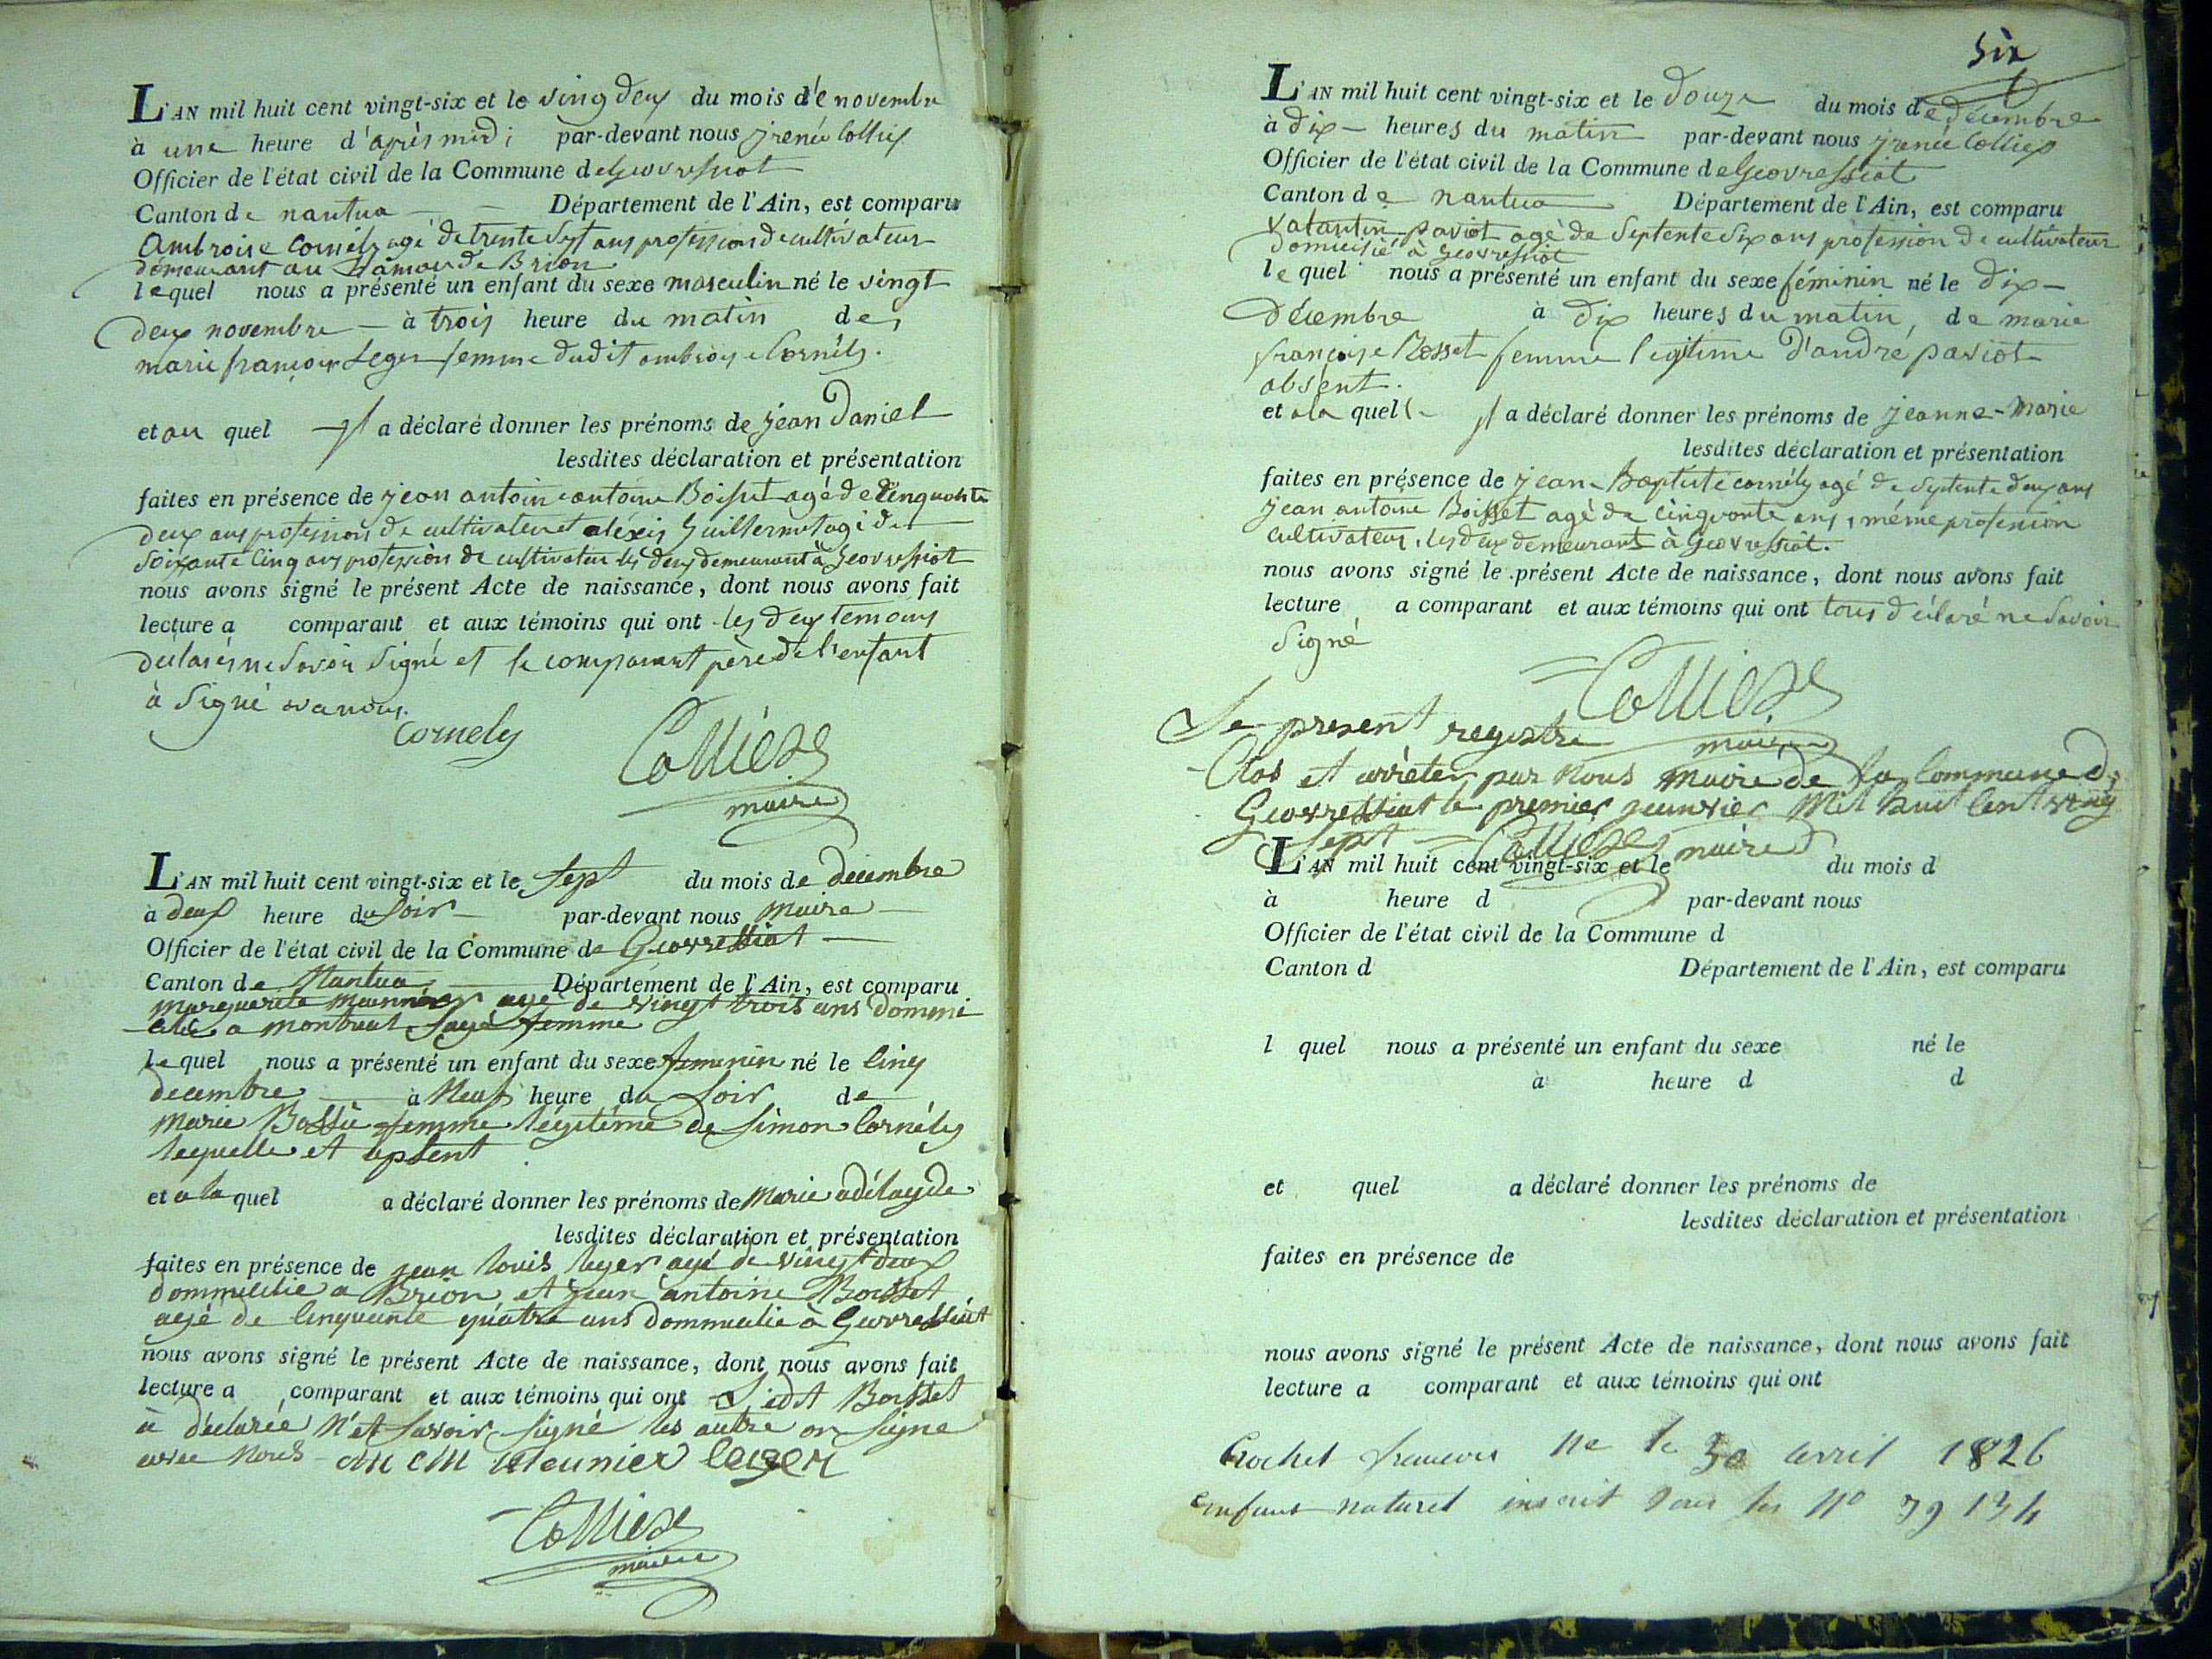 L'AN mil huit cent vingt-six et le ving deux du mois de novembre
à une heure d'après midi par-devant nous jrenée Colliex
Officier de l'état civil de la Commune de Geovressiat
Canton de nantua Département de l'Ain, est comparu
Ambroise Cornély agé de trente Sept ans profession de cultivateur
demeurant au hamau de Brion
lequel nous a présenté un enfant du sexe masculin né le vingt
deux novembre à trois heure du matin de
marie françoise Leger femme dudit ambroise Cornély.
et au quel jl a déclaré donner les prénoms de jean Daniel
lesdites déclaration et présentation
faites en présence de jean antoine antoine Boisset agé de Cinquante
deux ans profession de cultivateur et alexis Guillermet agé de
Soixante Cinq ans profession de cultivateur les deux demeurant à Geovressiat
nous avons signé le présent Acte de naissance, dont nous avons fait
lecture a comparant et aux témoins qui ont les deux temoins
declarés ne Savoir Signé et le comparant père de l'enfant
à Signé avanous.
Cornely Colliex
maire
L'AN mil huit cent vingt-six et le Sept du mois de decembre
à deux heure du Soir par-devant nous Maire
Officier de l'état civil de la Commune de Geovressiat
Canton de Nantua Département de l'Ain, est comparu
Marguerite agé de vingt trois ans dommi
cilié a montreal Sage femme
le quel nous a présenté un enfant du sexe feminin né le Cinq
decembre à Neuf heure du Soir de
Marie femme légitime de Simon Cornély
lequelle et apsent
et a la quel a déclaré donner les prénoms de Marie adélayde
lesdites déclaration et présentation
faites en présence de jean louis leger agé de vingt deux
dommicilié a Brion et jean antoine Boisset
agé de Cinquante quatre ans dommicilié à Geovressiat
nous avons signé le présent Acte de naissance, dont nous avons fait
lecture a comparant et aux témoins qui ont Boisset
à déclarée n'et Savoir Signé les autre on Signe
avec Nous Meunier leger
Colliex
maire
Six
L'AN mil huit cent vingt-six et le douze du mois de décembre
à dix heures du matin par-devant nous jrenée Colliex
Officier de l'état civil de la Commune de Geovressiat
Canton de nantua Département de l'Ain, est comparu
Valantin paviot agé de Septente Six ans profession de cultivateur
domicilié à Geovressiat
le quel nous a présenté un enfant du sexe féminin né le dix
décembre à dix heures du matin, de marie
françoise Rosset femme legitime d'andré paviot
absent.
et ala quelle jl a déclaré donner les prénoms de jeanne-Marie
lesdites déclaration et présentation
faites en présence de jean-Baptiste cornély agé de Septente deux ans
jean antoine Boisset agé de Cinquante ans, même profession
cultivateurs, les deux demeurants à Geovressiat.
nous avons signé le présent Acte de naissance, dont nous avons fait
lecture a comparant et aux témoins qui ont tous déclaré ne Savoir
Signé
Colliex
Le present registre maire
Clos et arrèter par Nous Maire de la Commune de
Geovressiat le premier jeanvier Mil huit Cent vingt
Sept Colliex maire
L'AN mil huit cent vingt-six et le du mois d
à heure d par-devant nous
Officier de l'état civil de la Commune d
Canton d Département de l'Ain, est comparu
l quel nous a présenté un enfant du sexe né le
à heure d d
et quel a déclaré donner les prénoms de
lesdites déclaration et présentation
faites en présence de
nous avons signé le présent Acte de naissance, dont nous avons fait
lecture a comparant et aux témoins qui ont
Crochet francois ne le 30 avril 1826
enfant naturel inscrit sous les No